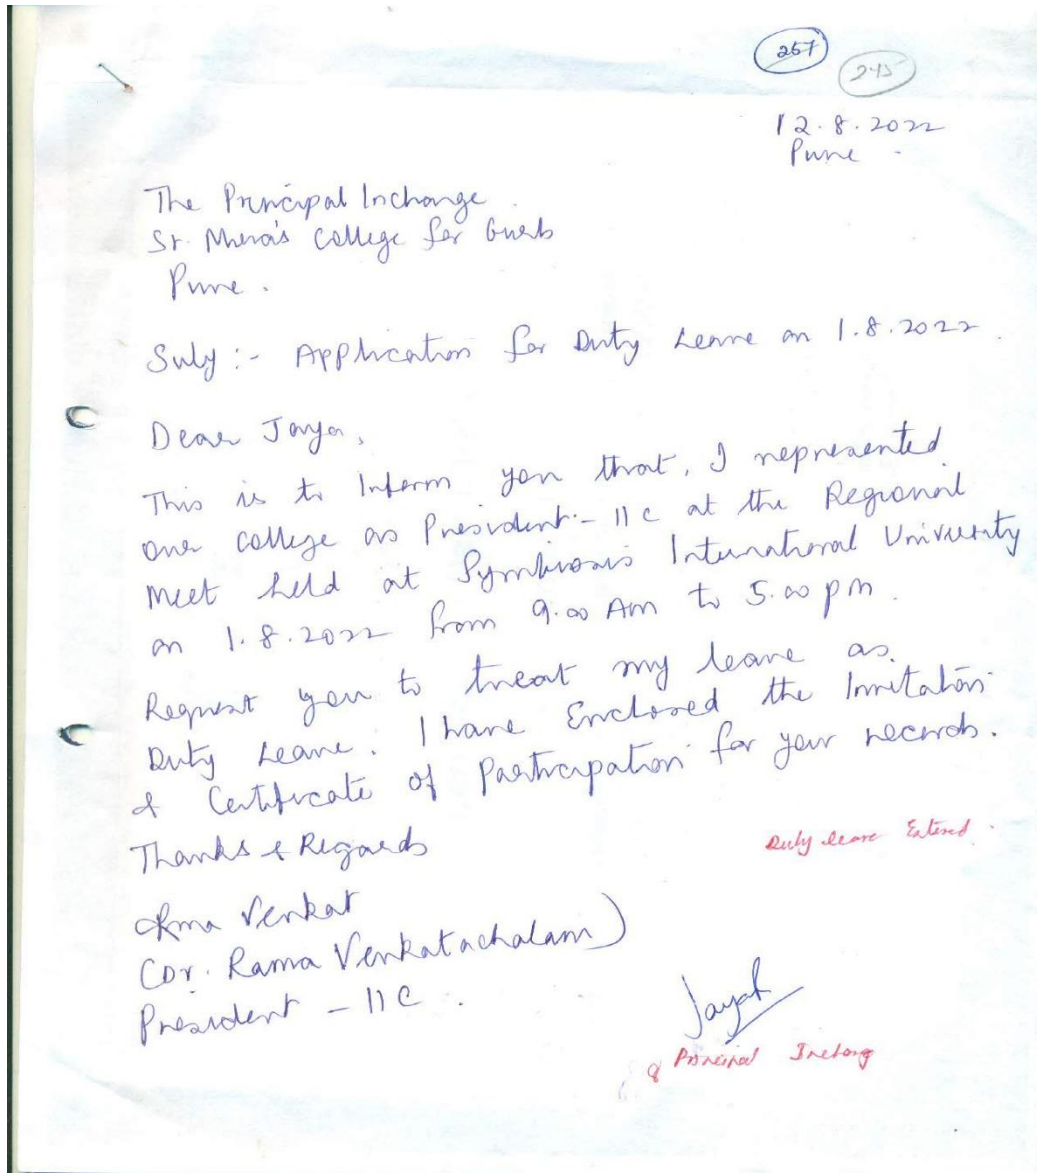 257
245
12.8.2022
Pune
The Principal Incharge
St. Mira's College for Girls
Pune.
Subj :- Application for Duty Leave on 1.8.2022.
Dear Jaya,
This is to Inform you that, I represented
our college as President - IIC at the Regional
Meet held at Symbiosis International University
on 1.8.2022 from 9.00 Am to 5.00 pm.
Request you to treat my leave as
Duty Leave. I have Enclosed the Invitation
& Certificate of Participation for your records.
Thanks & Regards
Rama Venkat
(Dr. Rama Venkatachalam)
President - IIC.
Duty leave Entered.
Principal Incharg